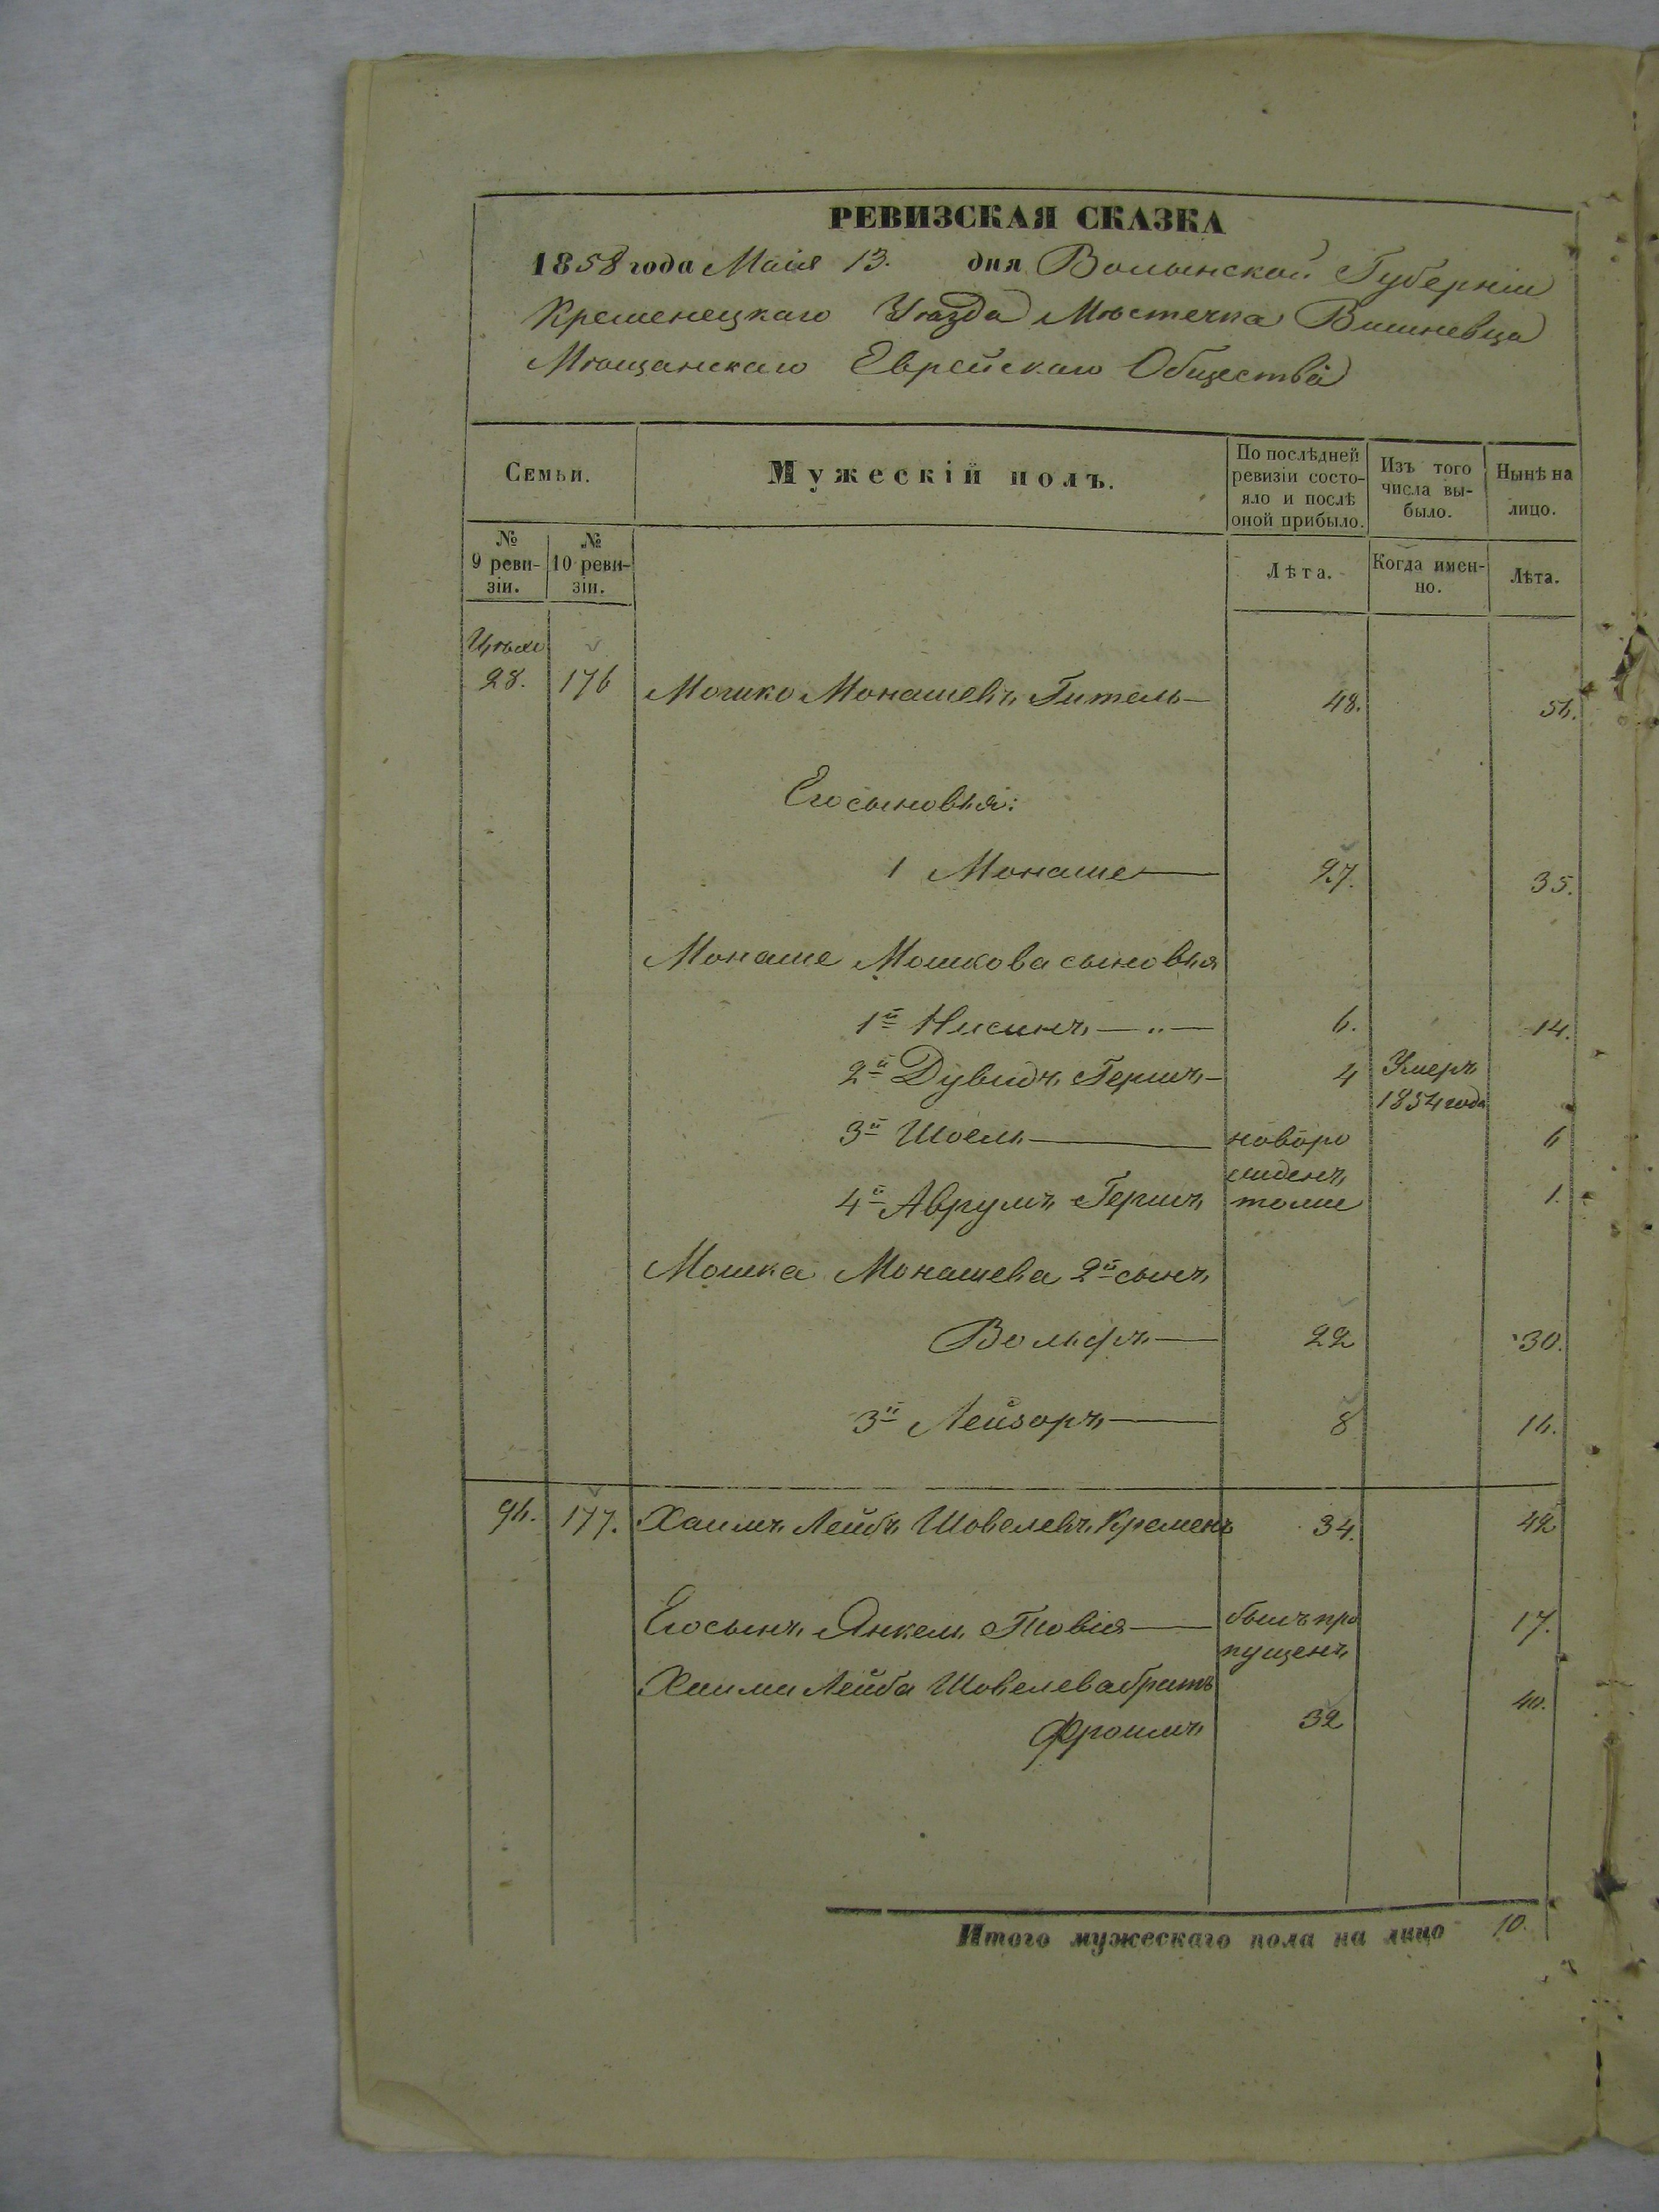 РЕВИЗСКАЯ СКАЗКА
1858 года Маія 13. дня Волынской Губерніи
Кременецкаго Уѣзда Мѣстечка Вишневца
Мѣщанскаго Еврейскаго Общества
Семьи. Мужескій полъ. По послѣдней ревизіи состояло и послѣ оной прибыло. Изъ того числа выбыло. Нынѣ на лицо.
№ 9 ревизіи. № 10 ревизіи. Лѣта. Когда именно. Лѣта.
28. 176 Мошко Монашевъ Гитель 48. 56.
Его сыновья:
1 Монаше 27. 35.
Монаше Мошкова сыновья
1й Нисинъ 6. 14.
2й Дувидъ Гершъ 4 Умеръ
1854 года
3й Шоель новоро 6
жденъ
4й Аврумъ Гершъ тоже 1.
Мошка Монашева 2й сынъ
Вольфъ 22 30.
3й Лейзоръ 8 16.
96. 177. Хаимъ Лейбъ Шовелевъ Кременъ 34. 42
Его сынъ Янкель Товія былъ про 17.
пущенъ
Хаима Лейба Шовелева братъ
Фроимъ 32 40.
Итого мужескаго пола на лицо 10.